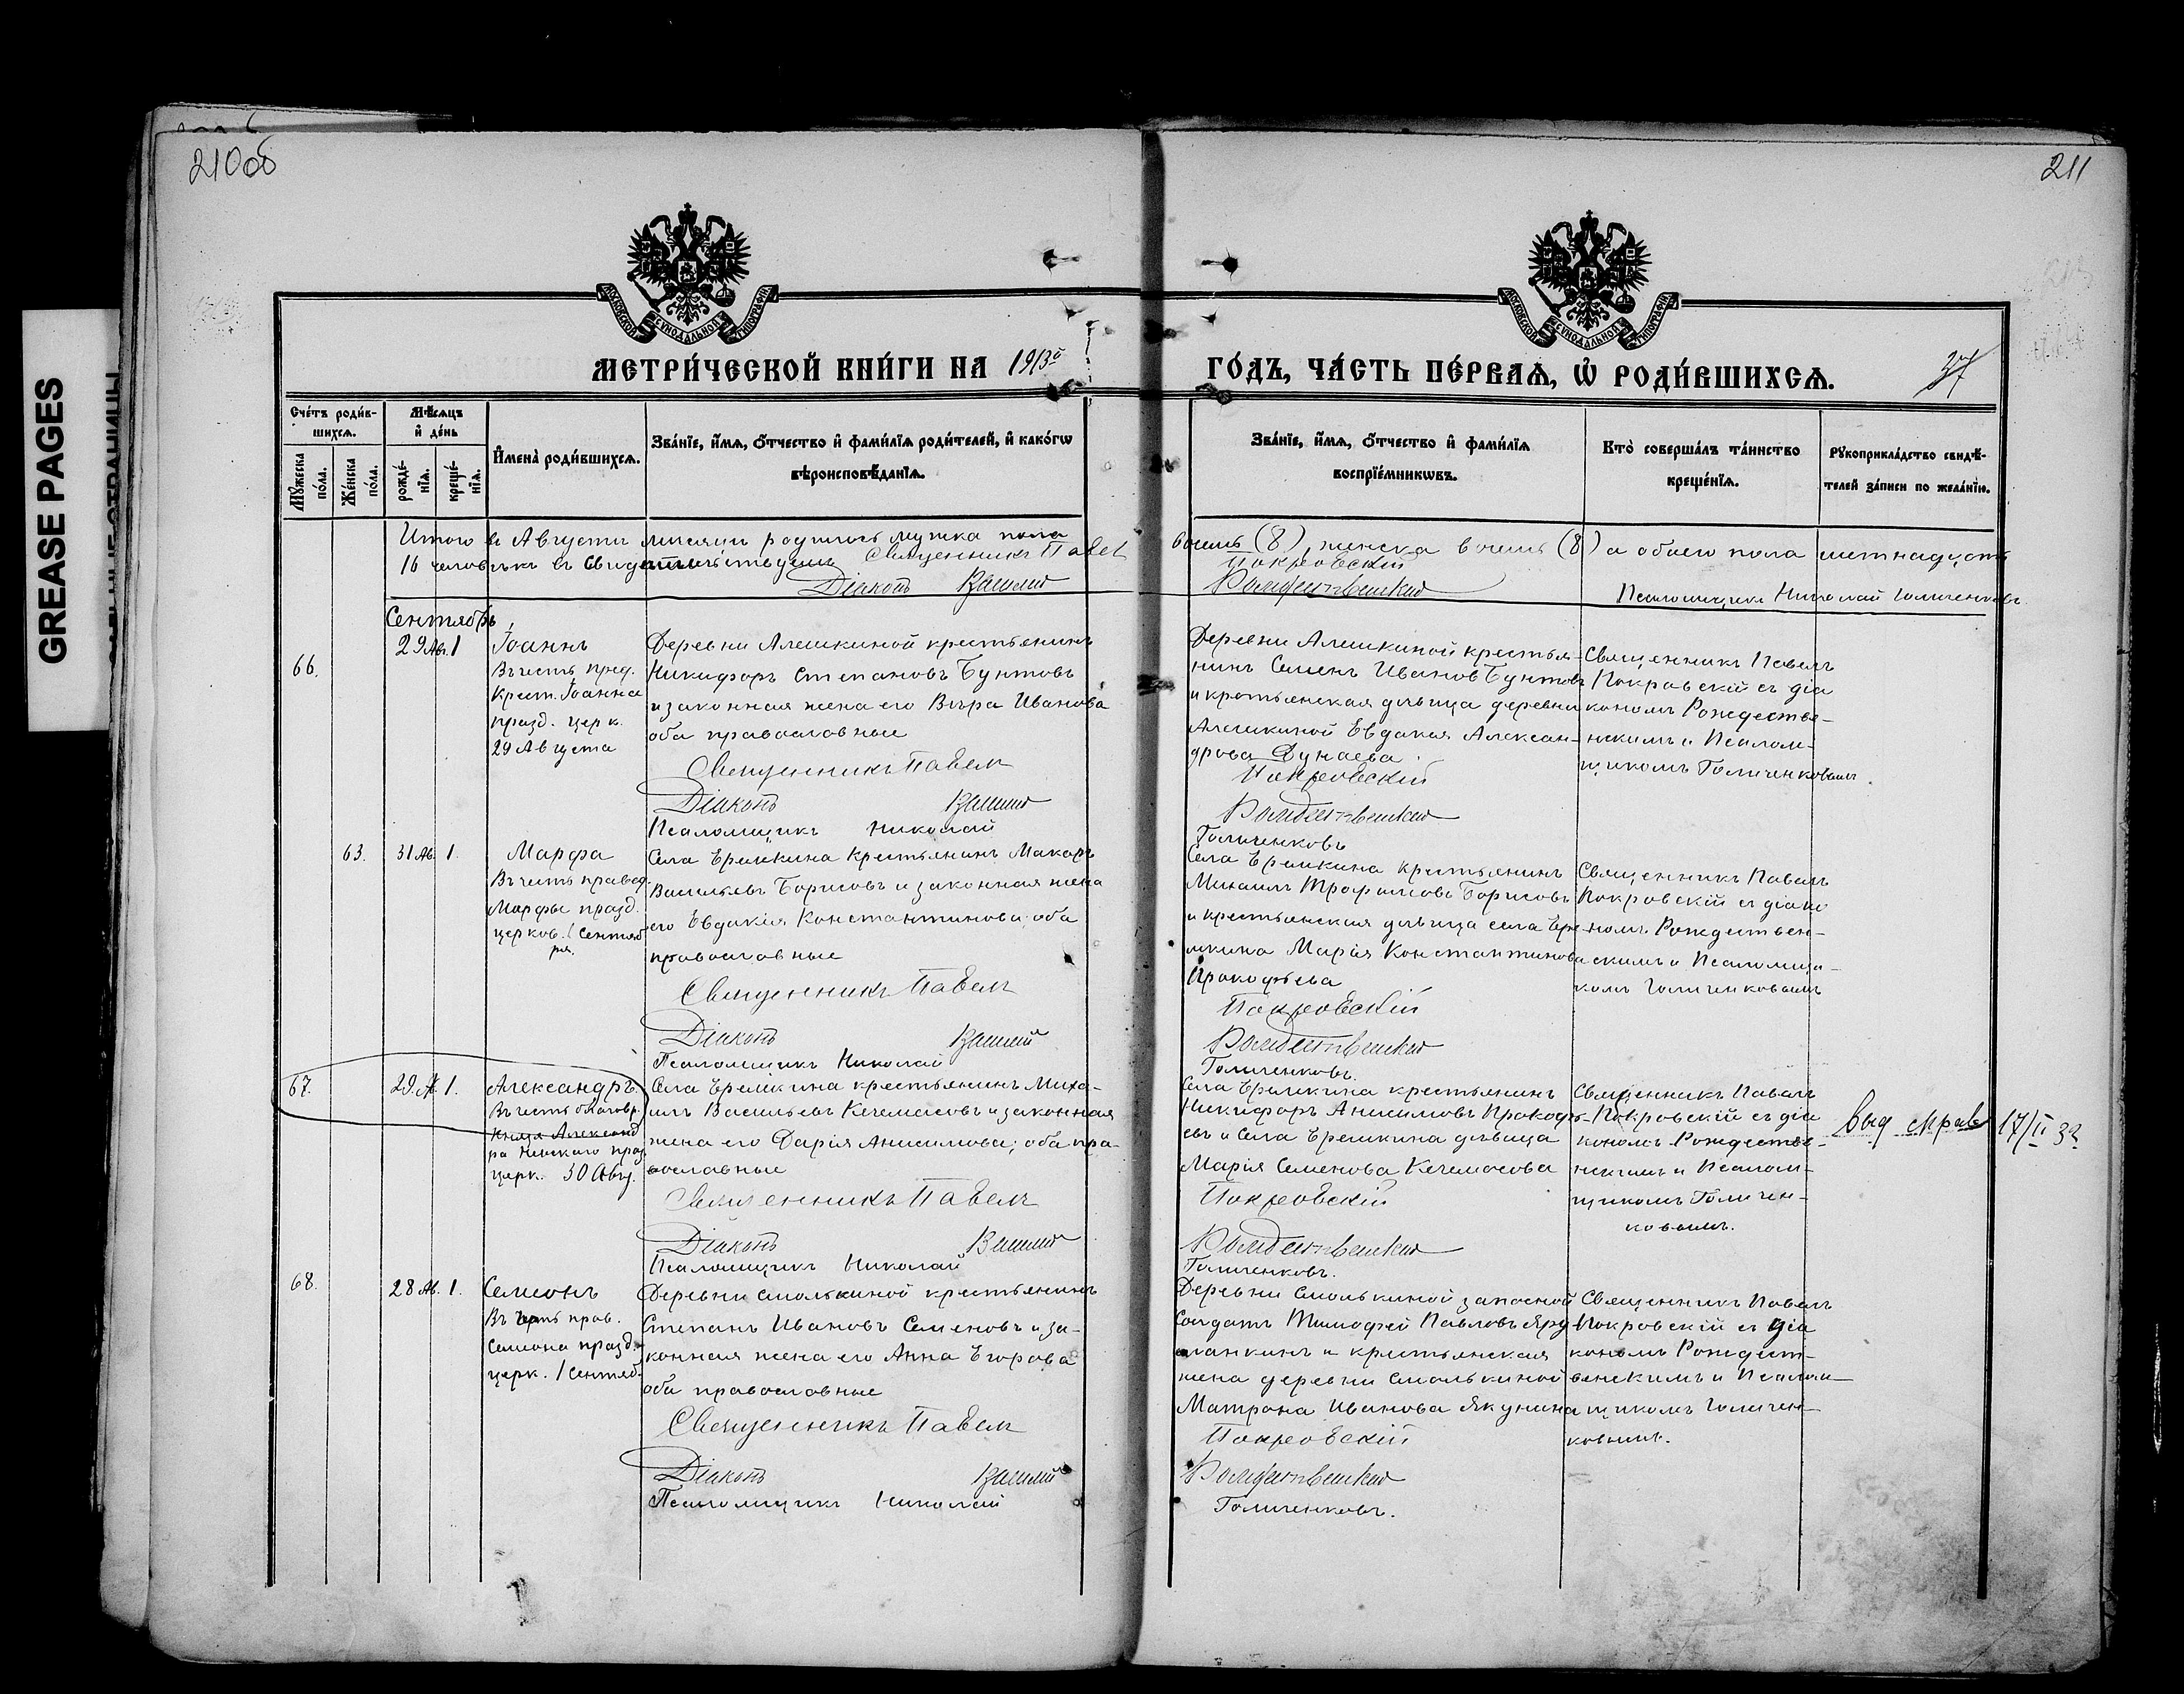 210об
211
GREASE PAGES
МОСКОВСКОЙ СѴНОДАЛЬНОЙ ТИПОГРАФІИ
МОСКОВСКОЙ СѴНОДАЛЬНОЙ ТИПОГРАФІИ
МЕТРИ́ЧЕСКОЙ КНИ́ГИ НА 1913й
ГО́ДЪ, ЧА́СТЬ ПЕ́РВАѦ, Ѽ РОДИ́ВШИХСѦ.
37
Сче́тъ роди́в-
шихсѧ.
Мѣ́сѧцъ
и҆ де́нь
Мꙋ́жеска
по́ла.
Же́нска
по́ла.
рожде́-
нїѧ.
креще́-
нїѧ.
И҆мена̀ роди́вшихсѧ.
Зва́нїе, и҆́мѧ, ѻ҆́тчество и҆ фами́лїѧ роди́телей, и҆ како́гѡ
вѣроисповѣ́данїѧ.
Зва́нїе, и҆́мѧ, ѻ҆́тчество и҆ фами́лїѧ
воспрїе́мникѡвъ.
Кто̀ соверша́лъ та́инство
креще́нїѧ.
Рꙋкоприкла́дство свидѣ́-
телей за́писи по жела́нїю.
Итого въ Августѣ мѣсяцѣ родилось мужска пола
восемь (8), женска восемь (8) а обоего пола шестнадцать
16 человѣкъ въ свидѣтельствуемъ Священникъ Павелъ
Покровскій
Діаконъ Василій
Рождественскій
Псаломщикъ Николай Голиченковъ
Сентябрь
66.
29 Ав. 1
Іоаннъ
Въ честь пред.
Крест. Іоанна
празд. церк.
29 Августа
Деревни Алешкиной крестьянинъ
Никифоръ Степановъ Бунтовъ
и законная жена его Вѣра Иванова
оба православные
Священникъ Павелъ
Діаконъ Василій
Псаломщикъ Николай
Деревни Алешкиной крестья-
нинъ Семенъ Ивановъ Бунтовъ
и крестьянская дѣвица деревни
Алешкиной Евдокия Алексан-
дрова Дунаева
Покровскій
Рождественскій
Голиченковъ
Священникъ Павелъ
Покровскій съ діа
кономъ Рождестве-
нскимъ и Псалом-
щикомъ Голиченковымъ.
63.
31 Ав. 1.
Марфа
Въ честь правед.
Марфы празд.
церков. 1 Сентяб
ря.
Села Еремкина Крестьянинъ Макаръ
Васильевъ Борисовъ и законная жена
его Евдокія Константинова; оба
православные
Священникъ Павелъ
Діаконъ Василій
Псаломщикъ Николай
Села Еремкина крестьянинъ
Михаилъ Трофимовъ Борисовъ
и крестьянская дѣвица села Ере-
мкина Марія Константинова
Прокофьева
Покровскій
Рождественскій
Голиченковъ.
Священникъ Павелъ
Покровскій съ діако
номъ Рождествен-
скимъ и Псаломщи-
комъ Голиченковымъ
67.
29 А. 1.
Александръ.
Въ честь благовр.
Князя Александ
ра Невскаго праз
церк. 30 Авг.
Села Еремкина крестьянинъ Миха-
илъ Васильевъ Кечемасовъ и законная
жена его Дарія Анисимова; оба пра-
вославные
Священникъ Павелъ
Діаконъ Василій
Псаломщикъ Николай
Села Еремкина крестьянинъ
Никифоръ Анисимовъ Прокофь-
евъ и Села Еремкина дѣвица
Марія Семенова Кечемасова
Покровскій
Рождественскій
Голиченковъ.
Священникъ Павелъ
Покровскій съ діа
кономъ Рождестве-
нскимъ и Псалом-
щикомъ Голичен-
ковымъ.
Выд справ 17/II 32
68.
28 Ав. 1.
Семіонъ
Въ честь прав.
Семіона празд.
церк. 1 Сентяб.
Деревни Смолькиной крестьянинъ
Степанъ Ивановъ Семеновъ и за-
конная жена его Анна Егорова
оба православные
Священникъ Павелъ
Діаконъ Василій
Псаломщикъ Николай
Деревни Смолькиной запасной
Солдатъ Тимофей Павловъ Яру
шанкинъ и крестьянская
жена деревни Смолькиной
Матрона Иванова Якунина
Покровскій
Рождественскій
Голиченковъ.
Священникъ Павелъ
Покровскій съ діа
кономъ Рождест-
венскимъ и Псалом-
щикомъ Голичен-
ковымъ.